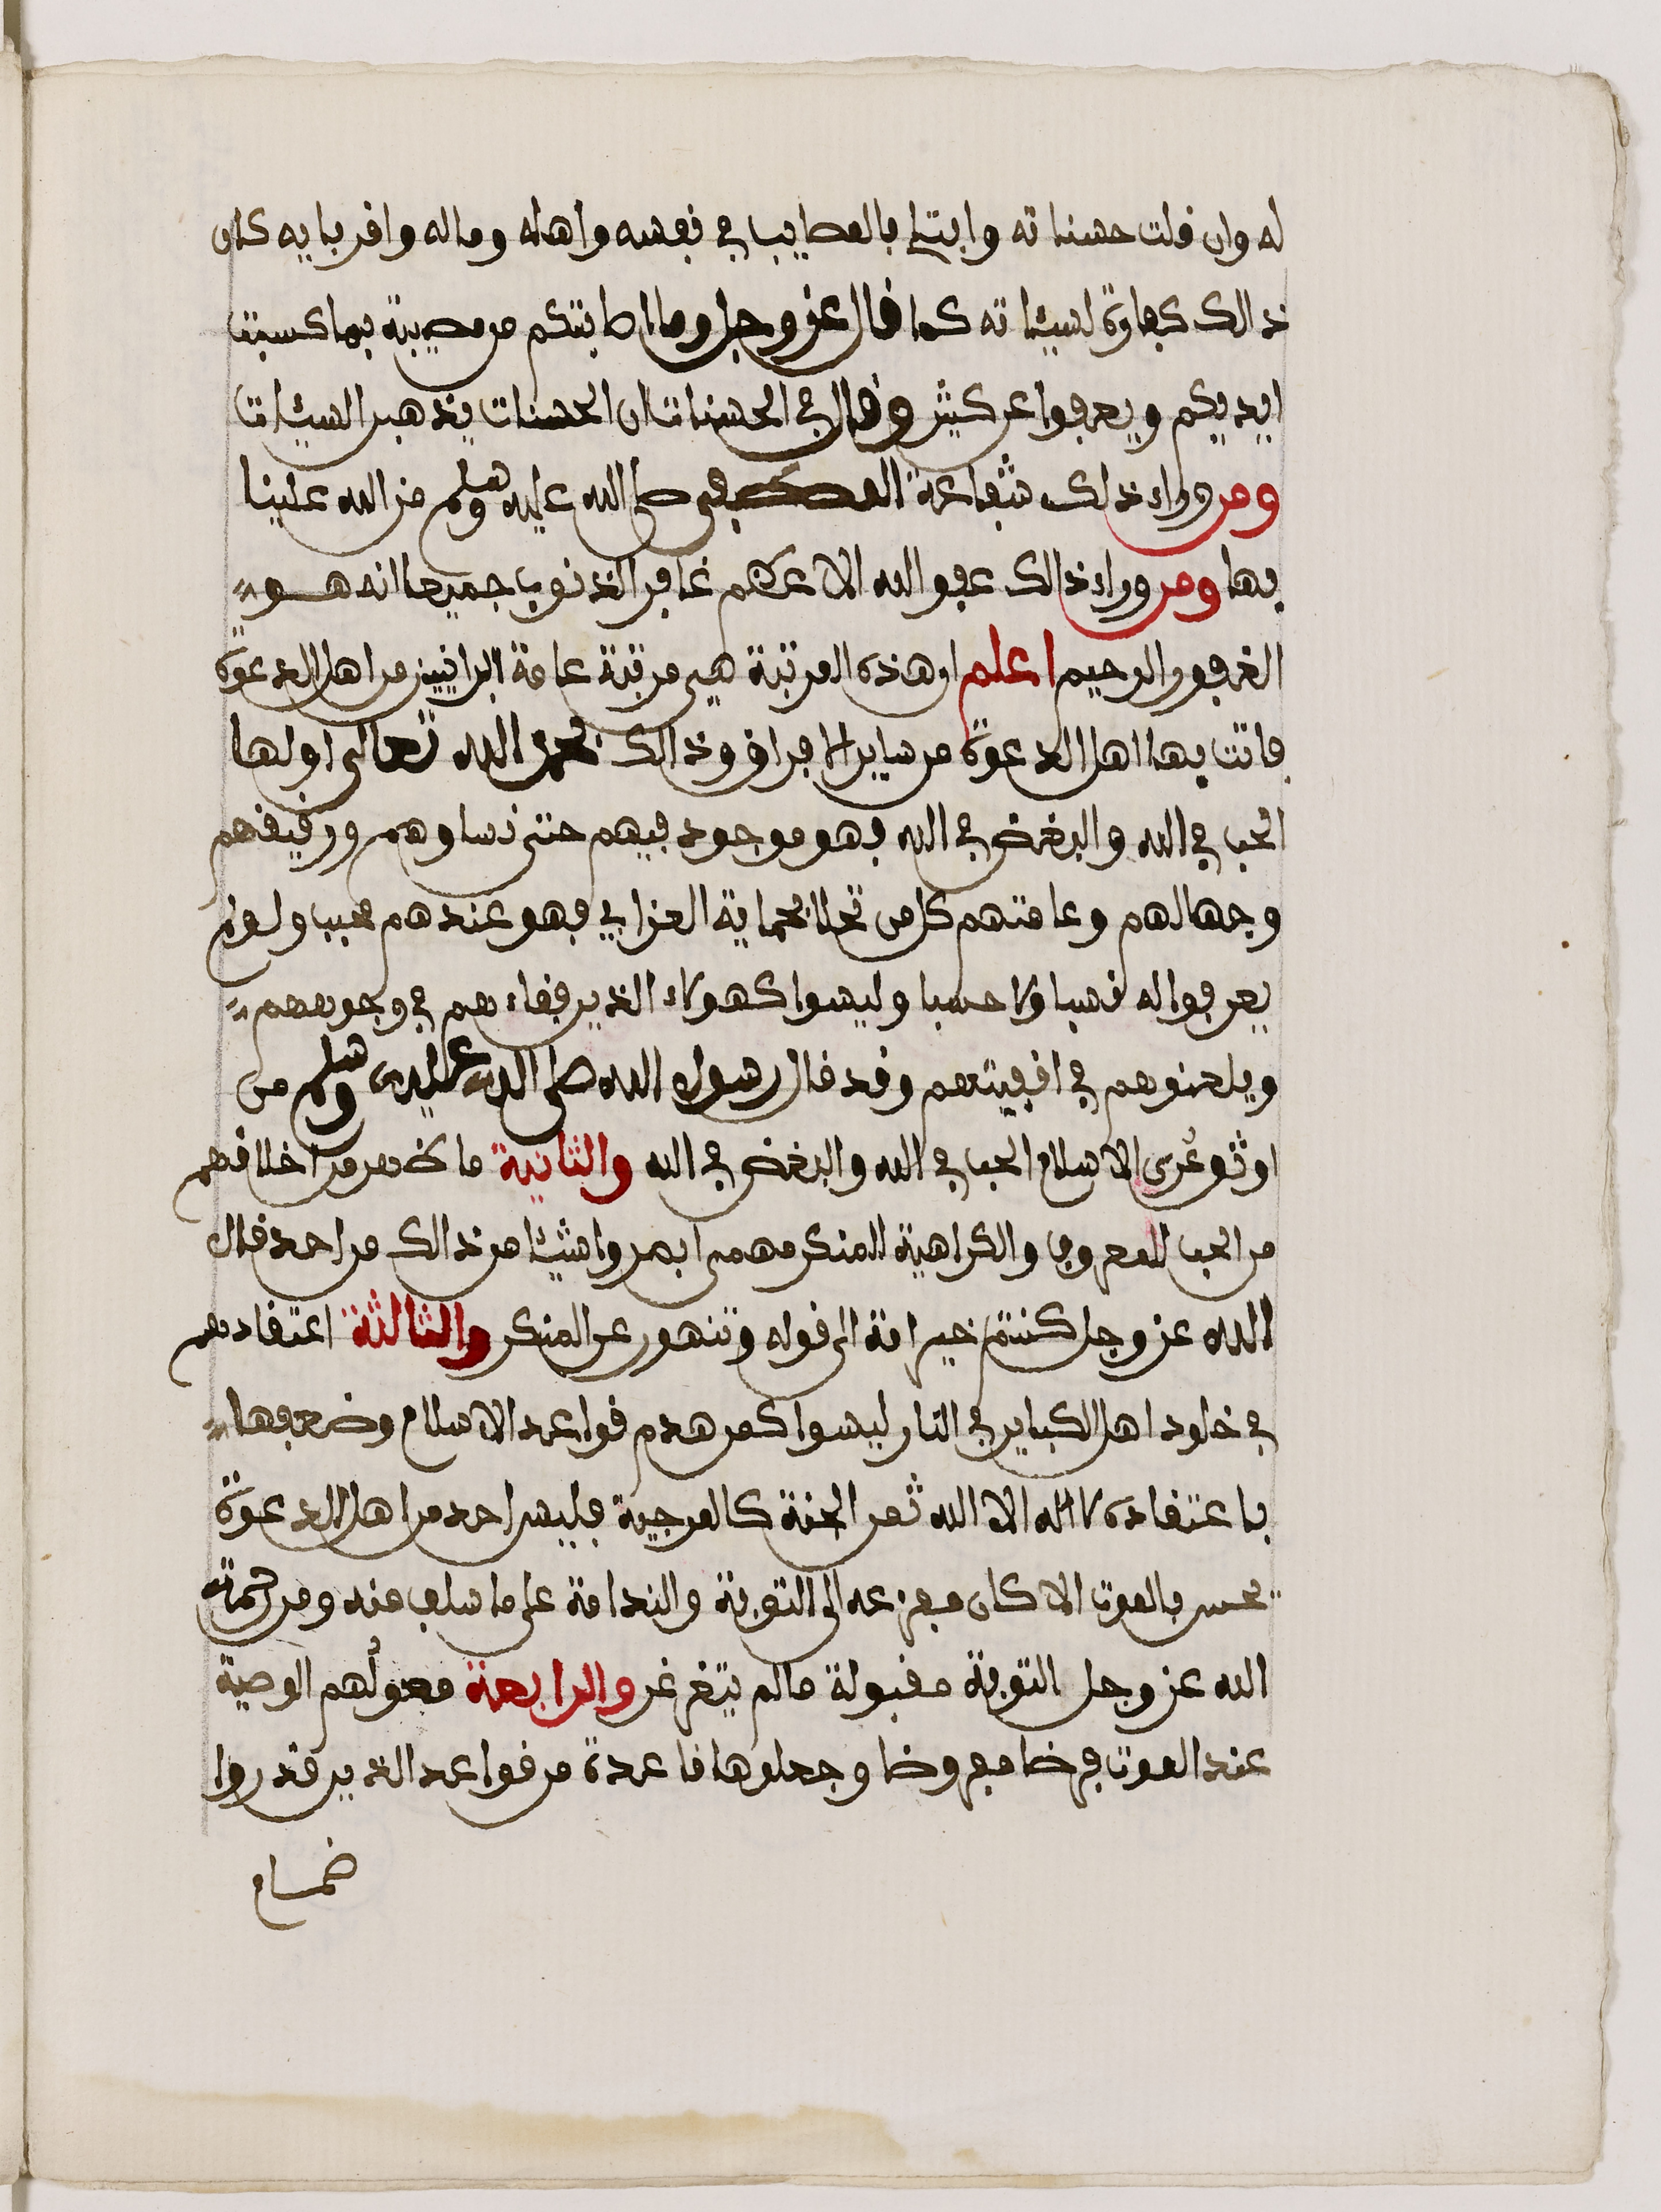 له وان قلت حسناته وابتلي بالمصايب في نفسه واهله وماله واقربايه كان
ذالك كفارة لسيئاته كما قال عز وجل وما اصابتكم من مصيبة بما كسبت
ايديكم ويعفوا عن كثير وقال في الحسنات ان الحسنات يذهبن السيئات
ومن وراء ذلك شفاعة المصطفى صلى الله عليه وسلم من الله علينا
بها ومن وراء ذالك عفو الله الاعظم غافر الذنوب جميعا انه هو
الغفور الرحيم اعلم ان هذه المرتبة هي مرتبة عامة البرانيين من اهل الدعوة
فاتت بها اهل الدعوة من ساير الافراق وذالك بحمد الله تعالى اولها
الحب في الله والبغض في الله فهو موجود فيهم حتى نساوهم ورقيقهم
وجهالهم وعامتهم كل من تحلا بحماية العزابي فهو عندهم محبب ولو لم
يعرفوا له نسبا ولا حسبا وليسوا كهولاء الذين في وجوههم
ويلعنوهم في افنيتهم وقد قال رسول الله صلى الله عليه وسلم من
اوثق عرى الاسلام الحب في الله والبغض في الله والثانية ما من اخلاقهم
من الحب للمعروف والكراهية للمنكر مهمى ابصروا شيئا من ذالك من احد قال
الله عز وجل كنتم خير امة الى قوله وتنهون عن المنكر والثالثة اعتقادهم
في خلود اهل الكباير في النار ليسوا كمن هدم قواعد الاسلام وضعفها
باعتقاده لا اله الا الله ثمن الجنة كالمرجية فليس احد من اهل الدعوة
يحس بالموت الا كان مفزعه الى التوبة والندامة على ما سلف منه ومن رحمة
الله عز وجل التوبة مقبولة مالم يتغرغر والرابعة معولهم الوصية
عند الموت فرضا مفروضا وجعلوها قاعدة من قواعد الذين قدروا